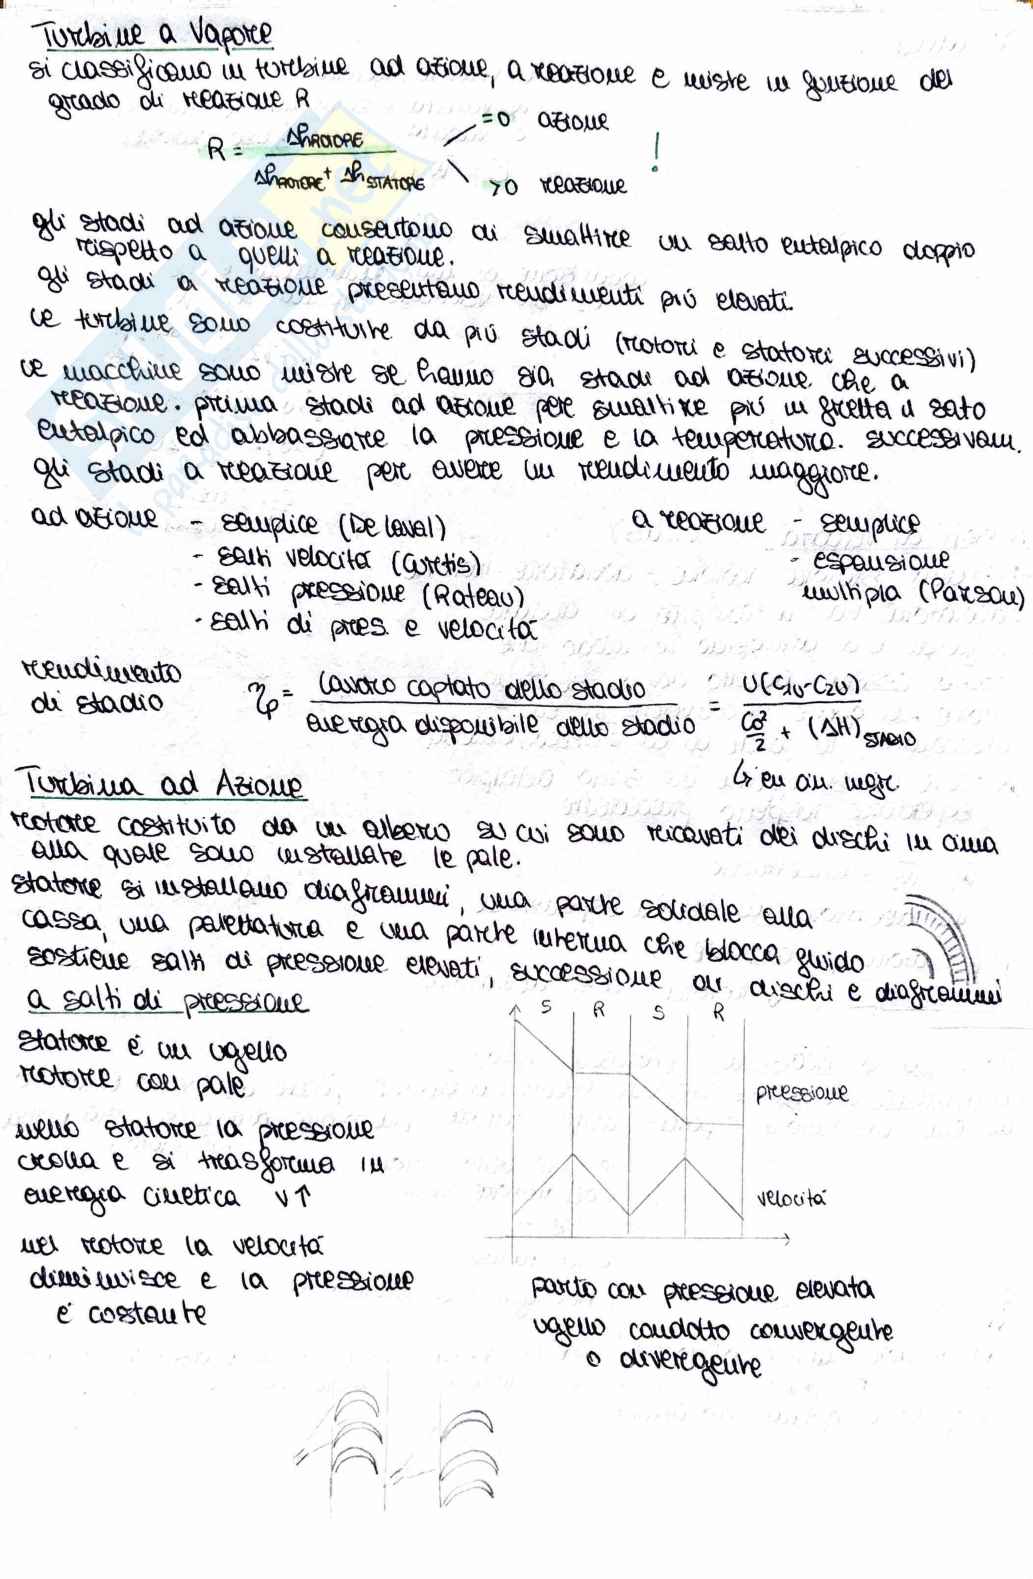 Turbine a Vapore
si classificano in turbine ad azione, a reazione e miste in funzione del
grado di reazione R
R = ΔhROTORE / ΔhROTORE + ΔhSTATORE
=0 azione
>0 reazione
!
gli stadi ad azione consentono di smaltire un salto entalpico doppio
rispetto a quelli a reazione.
gli stadi a reazione presentano rendimenti più elevati.
le turbine sono costituite da più stadi (rotori e statori successivi)
le macchine sono miste se hanno sia stadi ad azione che a
reazione. prima stadi ad azione per smaltire più in fretta il salto
entalpico ed abbassare la pressione e la temperatura. successivam.
gli stadi a reazione per avere un rendimento maggiore.
ad azione - semplice (De Laval)
- salti velocità (Curtis)
- salti pressione (Rateau)
- salti di pres. e velocità
a reazione - semplice
- espansione
multipla (Parson)
rendimento
di stadio
ηp = lavoro captato dello stadio / energia disponibile dello stadio = U(C1U-C2U) / C0²/2 + (ΔH)STADIO
↳ en cin. ingr.
Turbina ad Azione
rotore costituito da un albero su cui sono ricavati dei dischi in cima
alla quale sono installate le pale.
statore si installano diaframmi, una parte solidale alla
cassa, una palettatura e una parte interna che blocca guido
sostiene salti di pressione elevati, successione di dischi e diaframmi
a salti di pressione
S R S R
statore è un ugello
rotore con pale
pressione
nello statore la pressione
crolla e si trasforma in
energia cinetica v↑
velocità
nel rotore la velocità
diminuisce e la pressione
è costante
parto con pressione elevata
ugello condotto convergente
o divergente